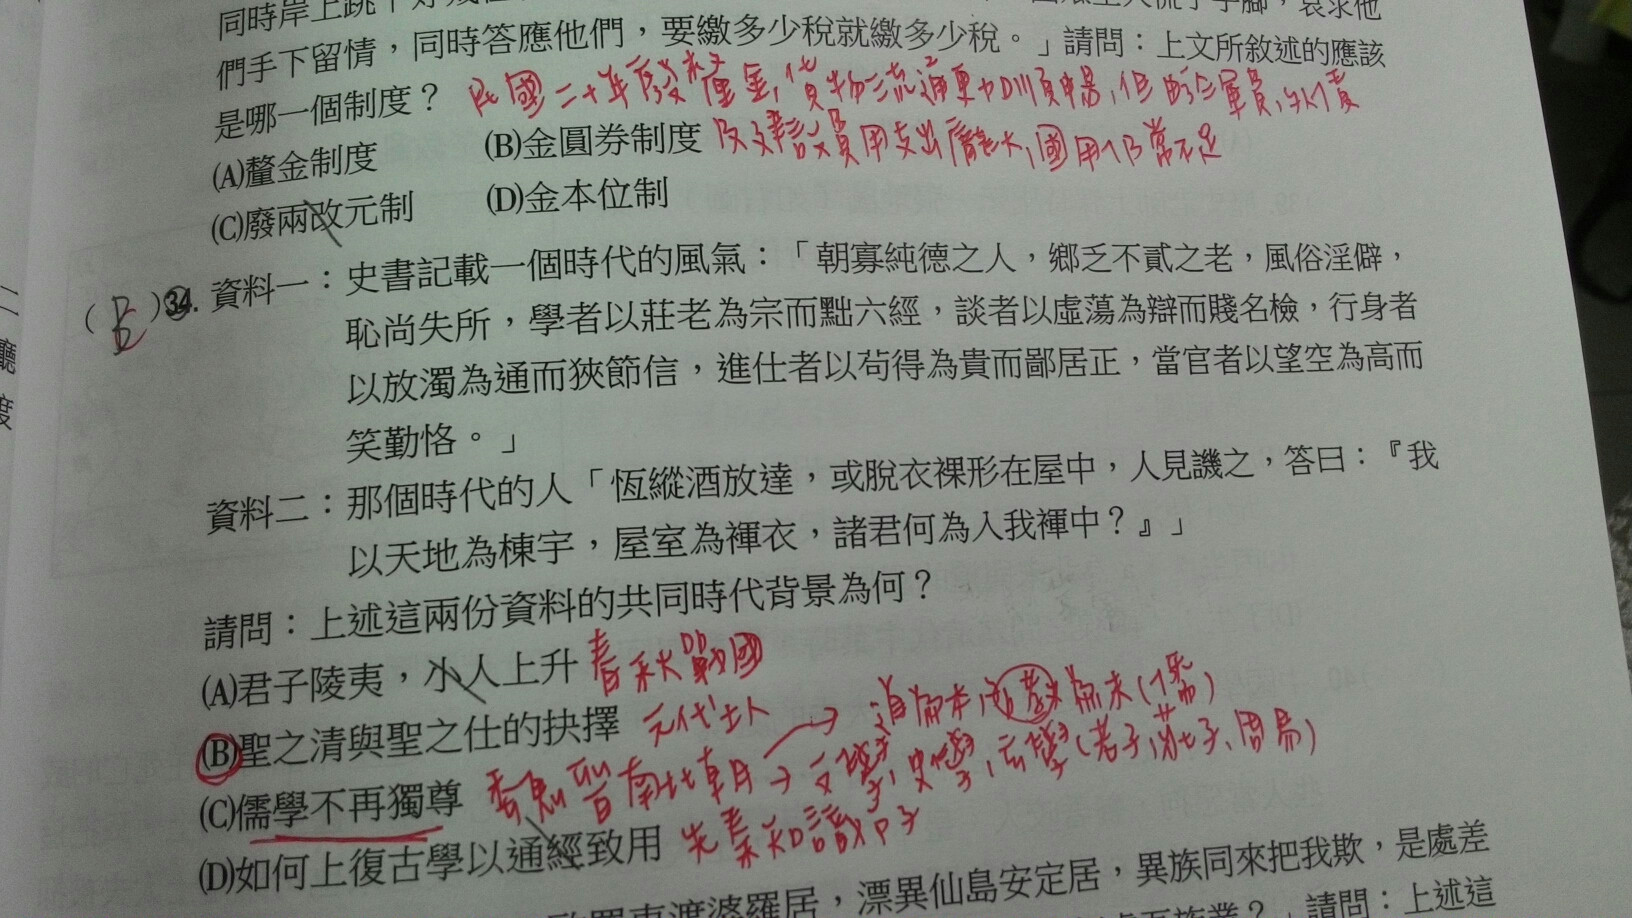 同時岸上跳下好幾
們手下留情，同時答應他們，要繳多少稅就繳多少稅。」請問：上文所敘述的應該
是哪一個制度？ 民國二十年廢釐金，貨物流通更加順暢，但政府軍費，外債
(A)釐金制度 (B)金圓券制度 及建設費用支出龐大，國用仍常不足
(C)廢兩改元制 (D)金本位制
( )34. 資料一：史書記載一個時代的風氣：「朝寡純德之人，鄉乏不貳之老，風俗淫僻，
恥尚失所，學者以莊老為宗而黜六經，談者以虛蕩為辯而賤名檢，行身者
以放濁為通而狹節信，進仕者以苟得為貴而鄙居正，當官者以望空為高而
笑勤恪。」
資料二：那個時代的人「恆縱酒放達，或脫衣裸形在屋中，人見譏之，答曰：『我
以天地為棟宇，屋室為褌衣，諸君何為入我褌中？』」
請問：上述這兩份資料的共同時代背景為何？
(A)君子陵夷，小人上升 春秋戰國
(B)聖之清與聖之仕的抉擇 元代士人 → 道為本，名教為末(儒)
(C)儒學不再獨尊 魏晉南北朝 → 文學，史學，玄學(老子，莊子，周易)
(D)如何上復古學以通經致用 先秦知識份子
東渡婆羅居，漂異仙島安定居，異族同來把我欺，是處差
？」請問：上述這
二
廳
度